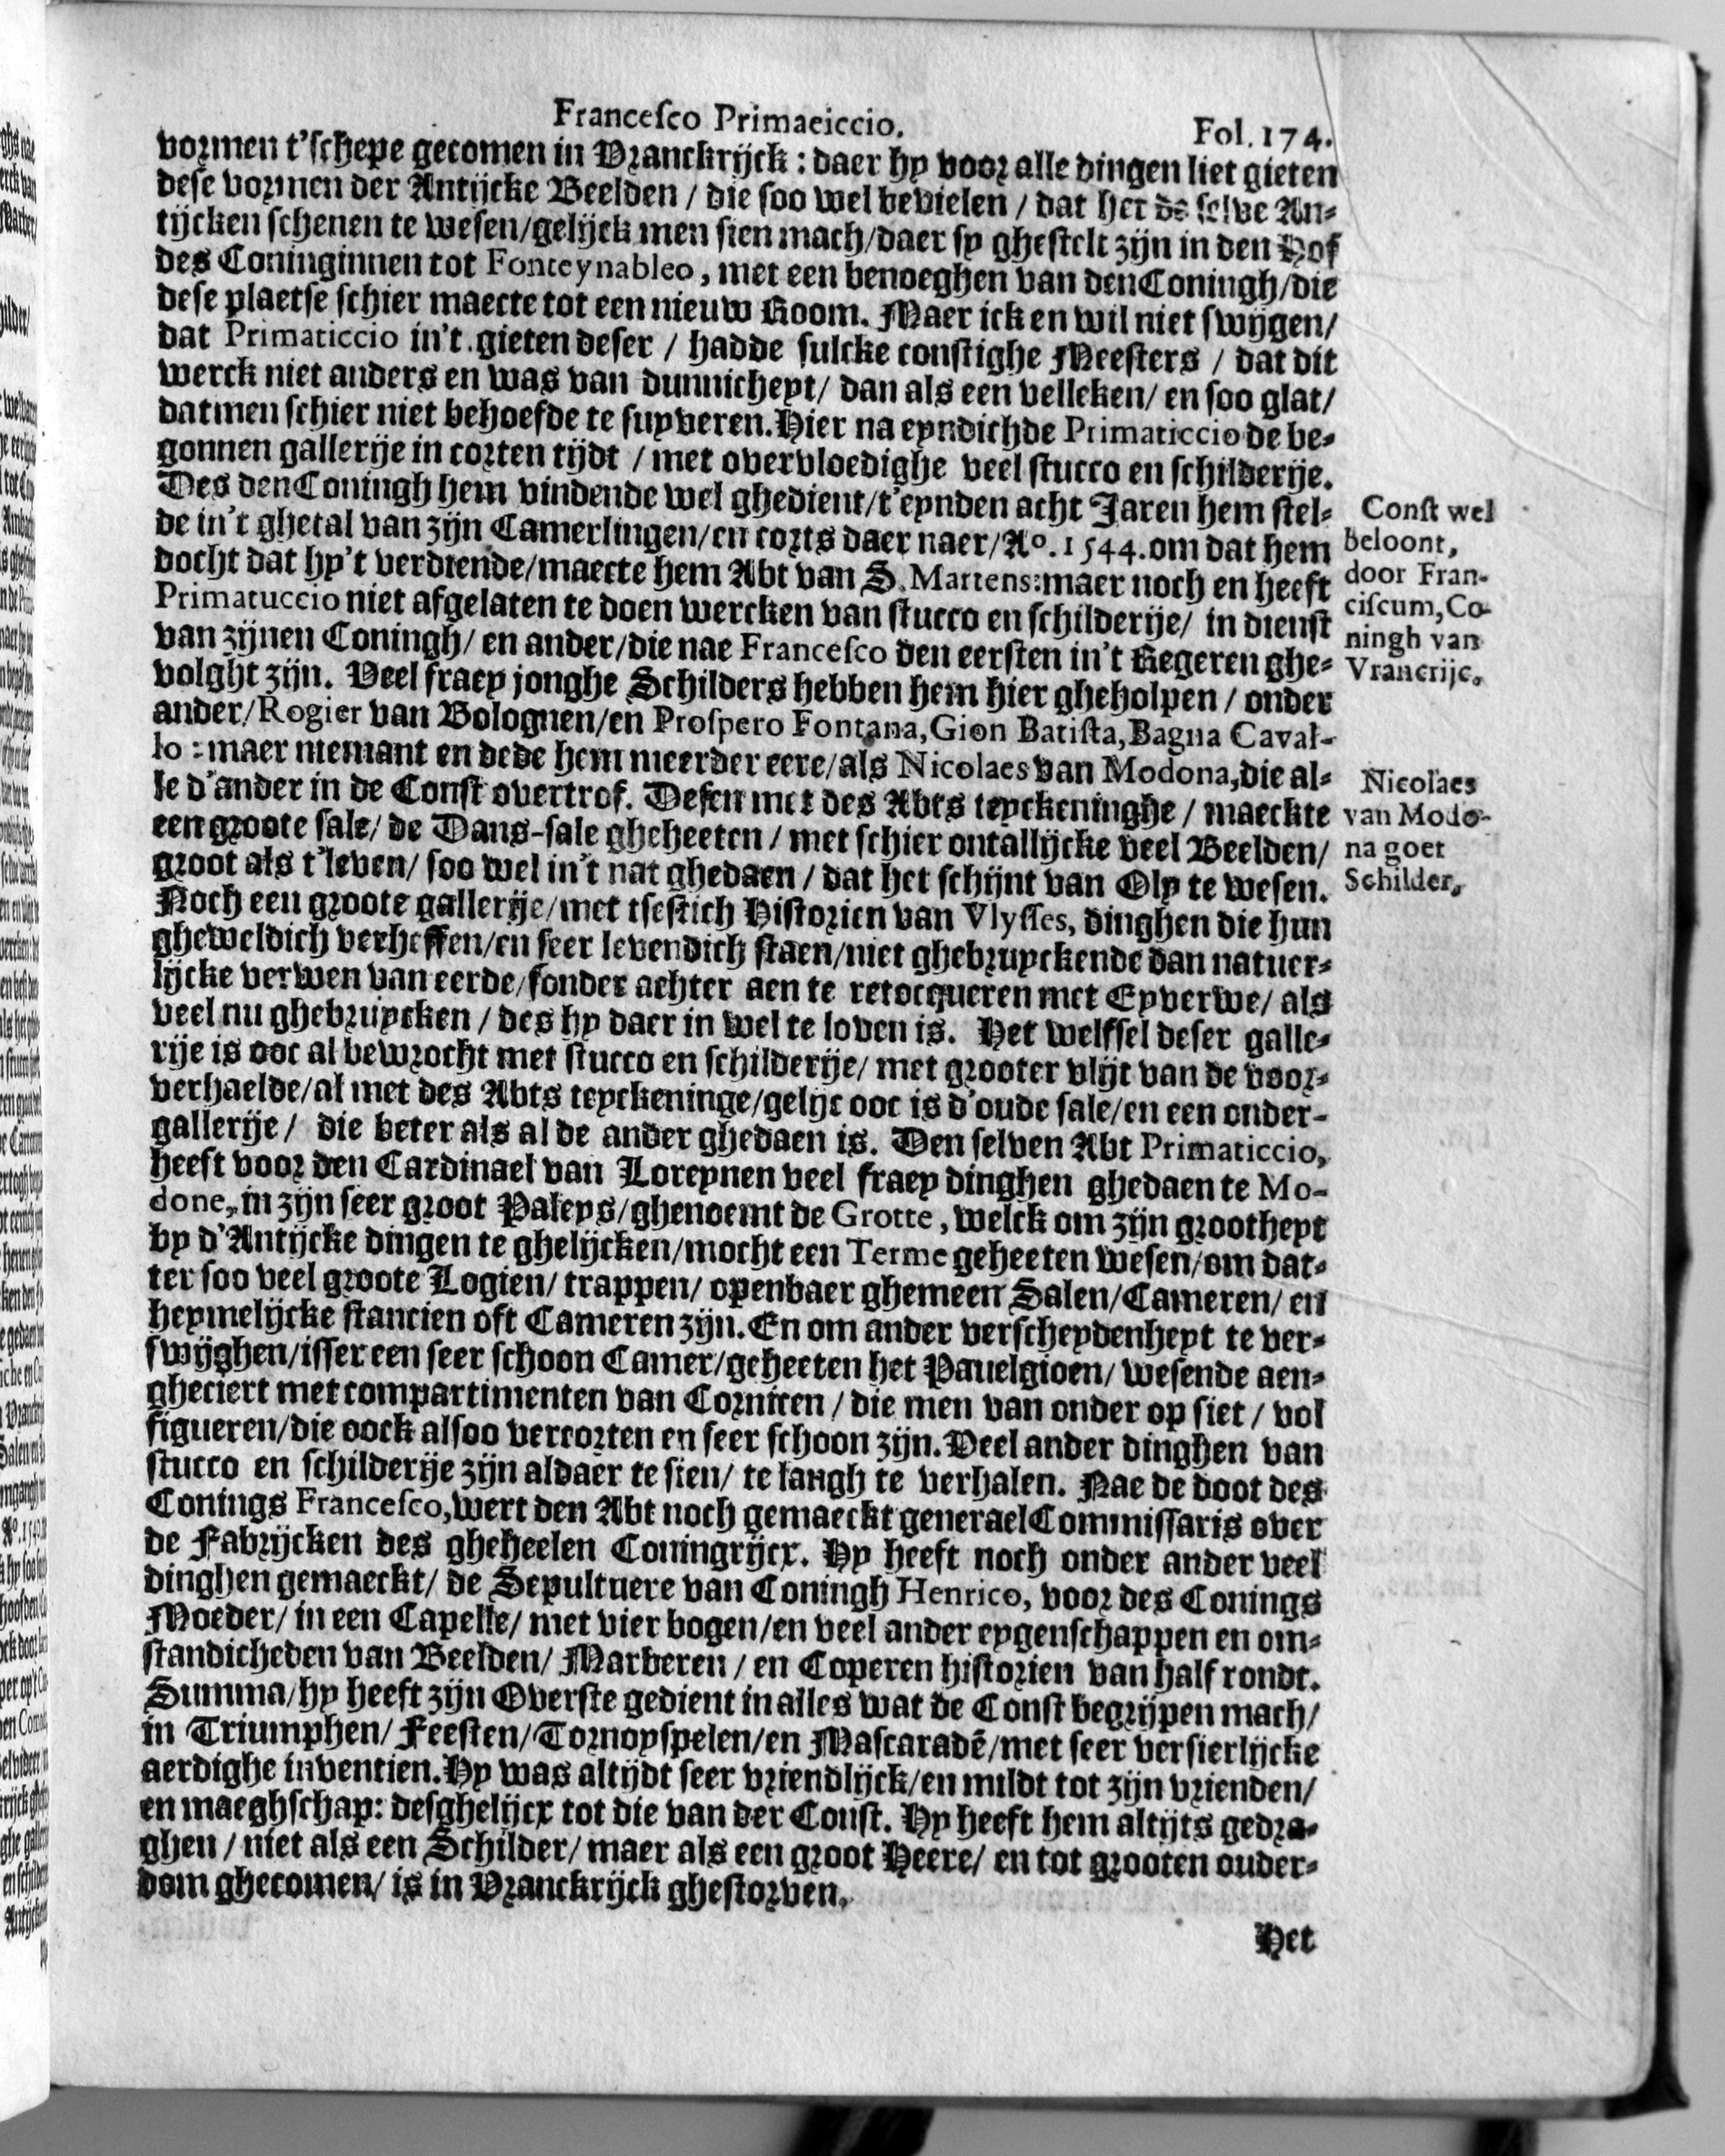 Francesco Primaeiccio.
Fol. 174.
vormen t'schepe gecomen in Vranckrijck: daer hy voor alle dingen liet gieten
dese vormen der Antijcke Beelden / die soo wel bevielen / dat het de selve An-
tijcken schenen te wesen/gelijck men sien mach/daer sy ghestelt zijn in den Hof
des Coninginnen tot Fonteynableo, met een benoeghen van den Coningh/die
dese plaetse schier maecte tot een nieuw Room. Maer ick en wil niet swijgen/
dat Primaticcio in't gieten deser / hadde sulcke constighe Meesters / dat dit
werck niet anders en was van dunnicheyt/ dan als een velleken/ en soo glat/
datmen schier niet behoefde te suyveren. Hier na eyndichde Primaticcio de be-
gonnen gallerije in corten tijdt / met overvloedighe veel stucco en schilderije.
Des den Coningh hem vindende wel ghedient/t'eynden acht Jaren hem stel-
de in't ghetal van zijn Camerlingen/en corts daer naer/Ao. 1544. om dat hem
docht dat hy't verdiende/maecte hem Abt van S. Martens: maer noch en heeft
Primatuccio niet afgelaten te doen wercken van stucco en schilderije/ in dienst
van zijnen Coningh/ en ander/die nae Francesco den eersten in't Regeren ghe-
volght zijn. Veel fraey jonghe Schilders hebben hem hier gheholpen / onder
ander/Rogier van Bolognen/en Prospero Fontana, Gion Batista, Bagna Caval-
lo: maer niemant en dede hem meerder eere/als Nicolaes van Modona, die al-
le d'ander in de Const overtrof. Desen met des Abts teyckeninghe / maeckte
een groote sale/ de Dans-sale gheheeten / met schier ontallijcke veel Beelden/
groot als t'leven/ soo wel in't nat ghedaen / dat het schijnt van Oly te wesen.
Noch een groote gallerije/met tsestich Historien van Vlysses, dinghen die hun
gheweldich verheffen/en seer levendich staen/niet ghebruyckende dan natuer-
lijcke verwen van eerde/sonder achter aen te retocqueren met Eyverwe/ als
veel nu ghebruycken / des hy daer in wel te loven is. Het welfsel deser galle-
rije is ooc al bewrocht met stucco en schilderije/ met grooter vlijt van de voor-
verhaelde/al met des Abts teyckeninge/gelijc ooc is d'oude sale/en een onder-
gallerije / die beter als al de ander ghedaen is. Den selven Abt Primaticcio,
heeft voor den Cardinael van Loreynen veel fraey dinghen ghedaen te Mo-
done, in zijn seer groot Paleys/ghenoemt de Grotte, welck om zijn grootheyt
by d'Antijcke dingen te ghelijcken/mocht een Terme geheeten wesen/om dat-
ter soo veel groote Logien/ trappen/ openbaer ghemeen Salen/Cameren/ en
heymelijcke stancien oft Cameren zijn. En om ander verscheydenheyt te ver-
swijghen/isser een seer schoon Camer/geheeten het Pauelgioen/ wesende aen-
gheciert met compartimenten van Cornicen / die men van onder op siet / vol
figueren/die oock alsoo vercorten en seer schoon zijn. Veel ander dinghen van
stucco en schilderije zijn aldaer te sien/ te langh te verhalen. Nae de doot des
Conings Francesco, wert den Abt noch gemaeckt generael Commissaris over
de Fabrijcken des gheheelen Coningrijcx. Hy heeft noch onder ander veel
dinghen gemaeckt/ de Sepultuere van Coningh Henrico, voor des Conings
Moeder/ in een Capelle/ met vier bogen/en veel ander eygenschappen en om-
standicheden van Beelden/ Marberen / en Coperen historien van half rondt.
Summa/hy heeft zijn Overste gedient in alles wat de Const begrijpen mach/
in Triumphen/ Feesten/Tornoyspelen/en Mascaradē/met seer versierlijcke
aerdighe inventien. Hy was altijdt seer vriendlijck/en mildt tot zijn vrienden/
en maeghschap: desghelijcx tot die van der Const. Hy heeft hem altijts gedra-
ghen / niet als een Schilder/ maer als een groot Heere/ en tot grooten ouder-
dom ghecomen/ is in Vranckrijck ghestorven.
Het
Const wel
beloont,
door Fran-
ciscum, Co-
ningh van
Vrancrijc.
Nicolaes
van Modo-
na goet
Schilder.